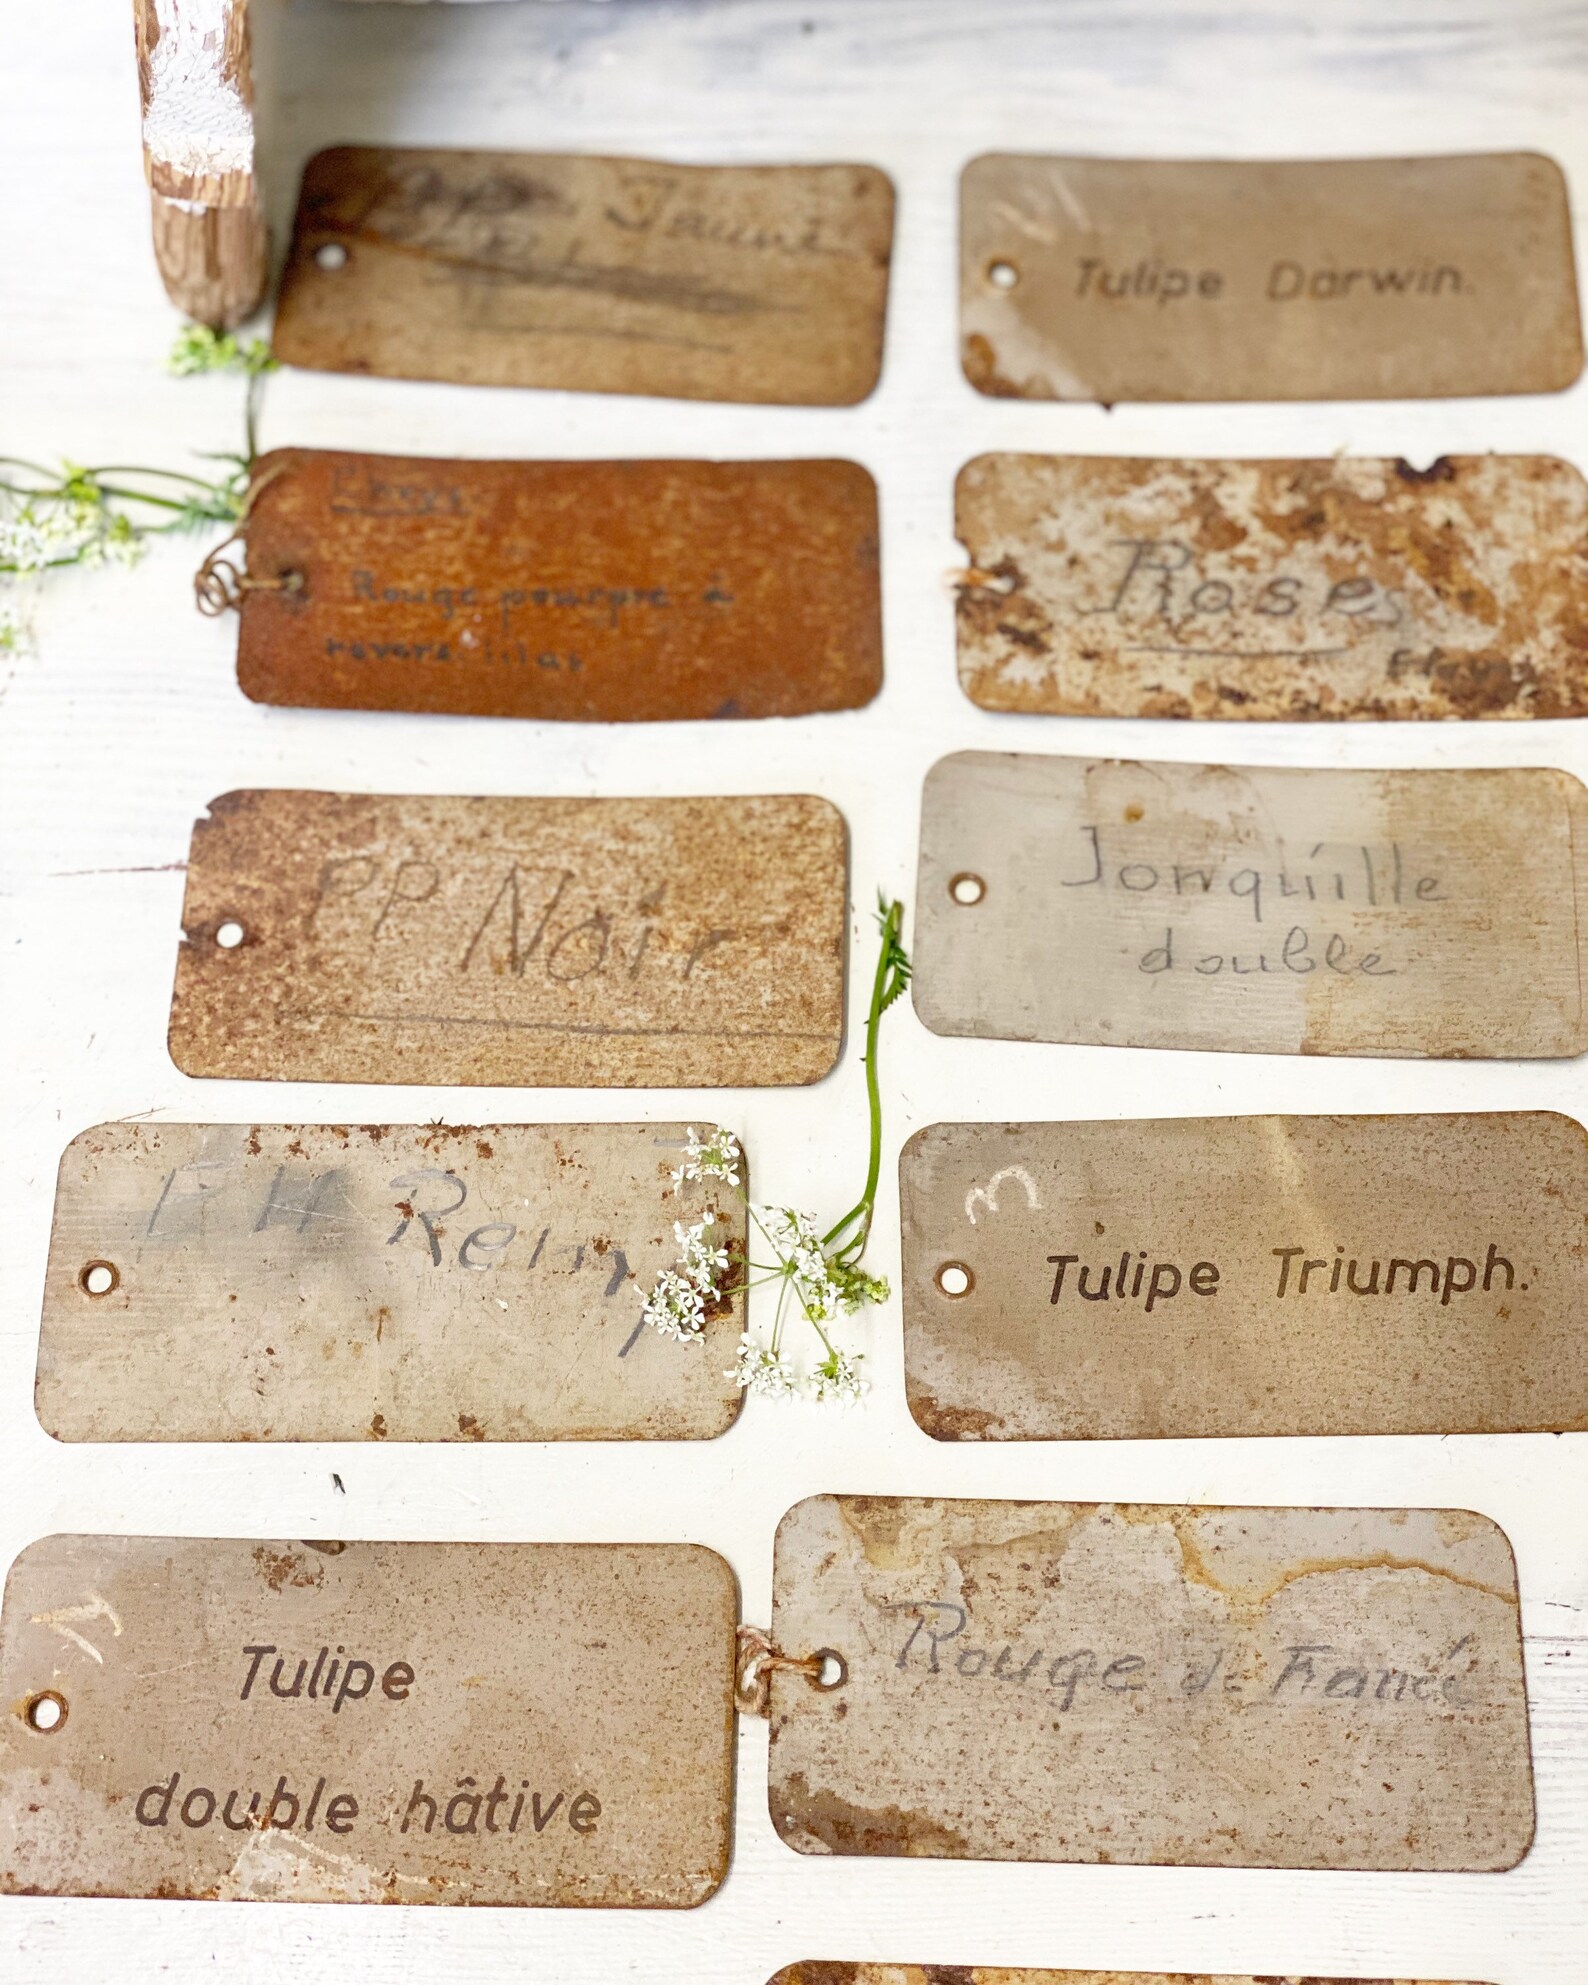 Jaune
Tulipe Darwin.
Chrys
Rouge pourpre à
revers lilas
Roses
PP Noir
Jonquille
double
E H Rein
3
Tulipe Triumph.
1
Tulipe
double hâtive
Rouge de